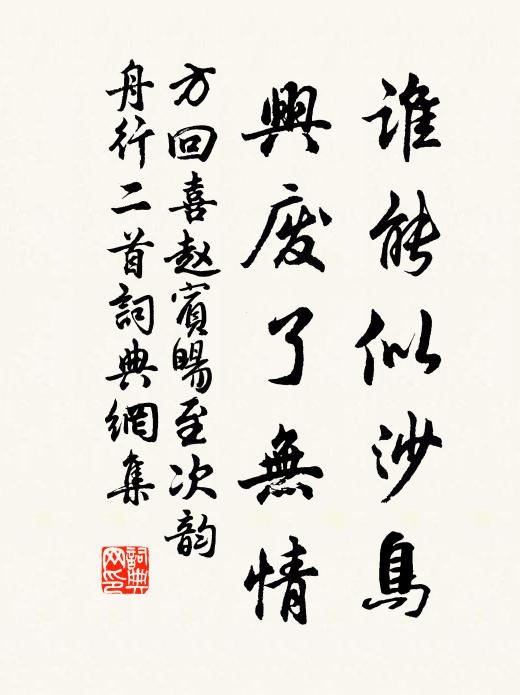 誰能似沙鳥
興廢了無情
方回喜赵賓暘至次韵
舟行二首詞典網集
詞典网印